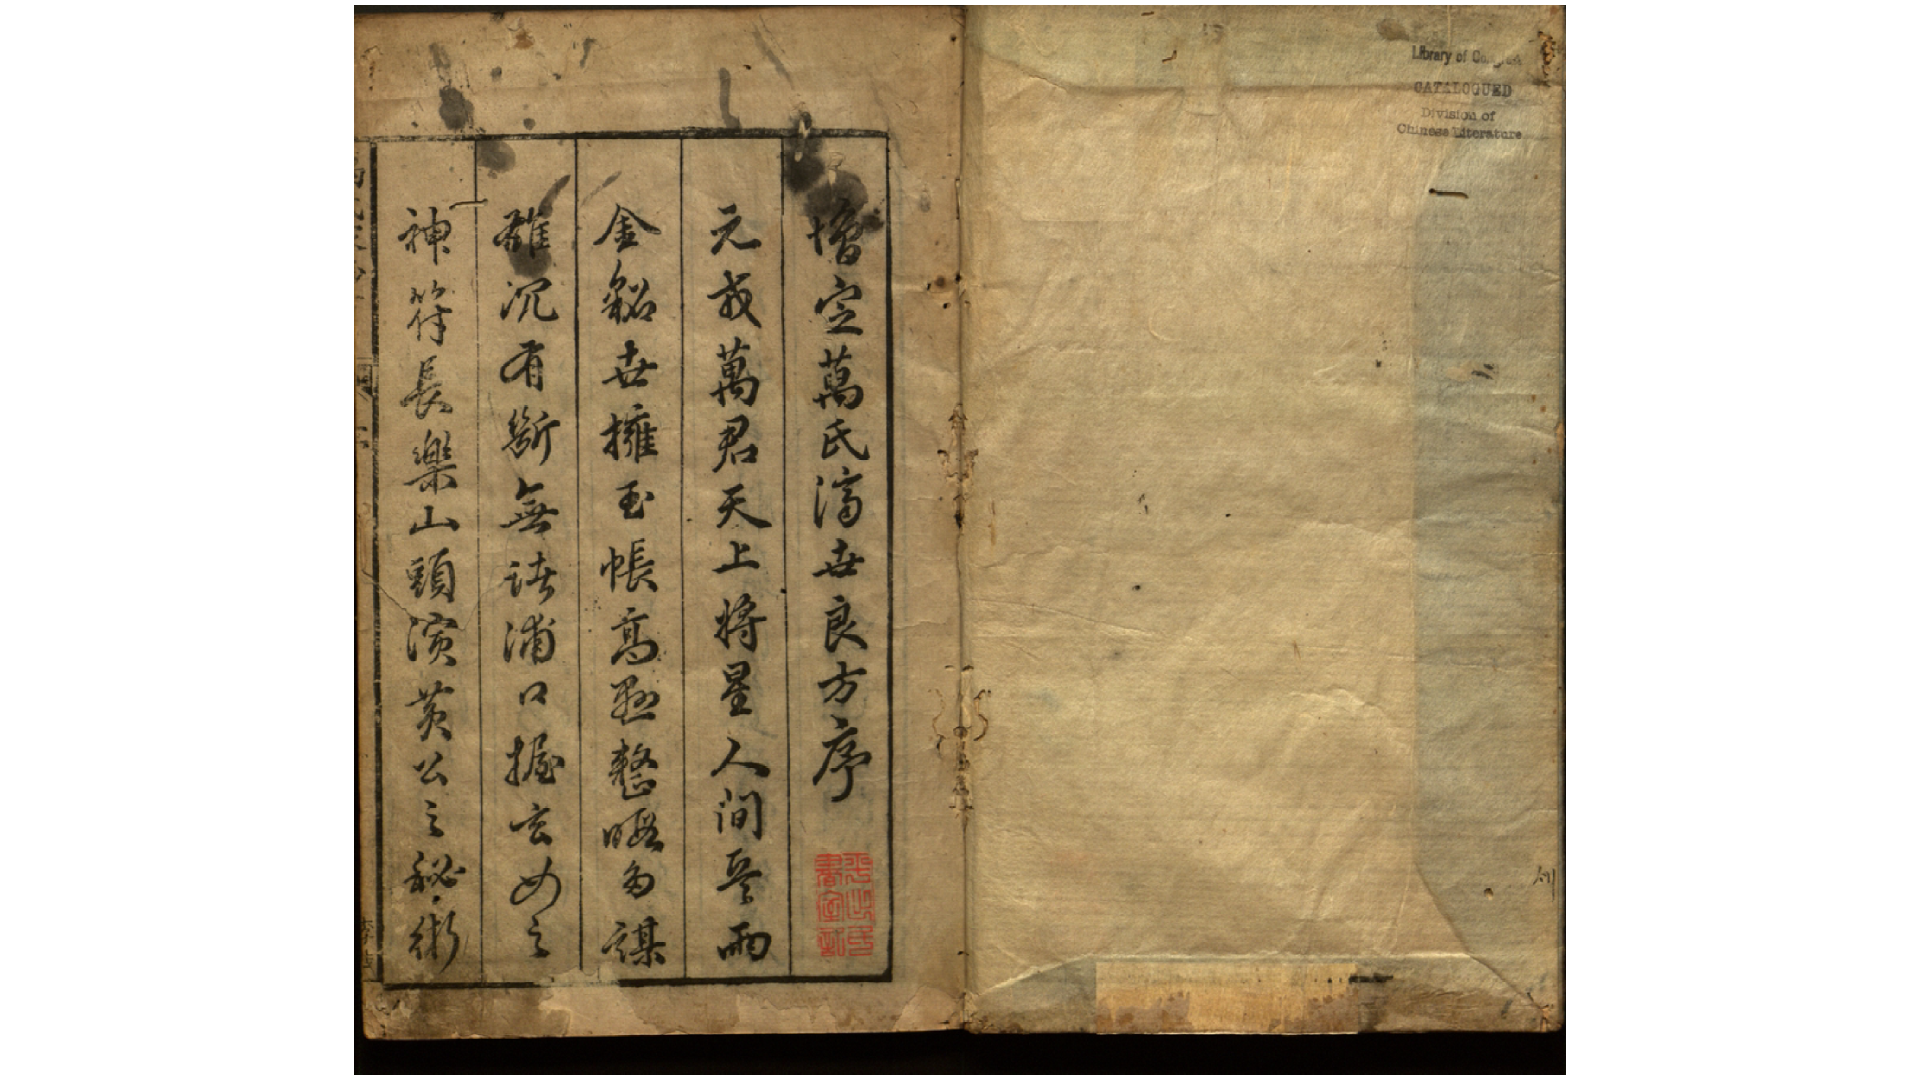 Library of Congress
CATALOGUED
Division of
Chinese Literature
增定萬氏濟世良方序
元戎萬君天上將星人間雨
金貂世擁玉帳高懸整暇多謀
雄沉有斷無諸浦口握玄女之
神符長樂山頭演黃公之秘術